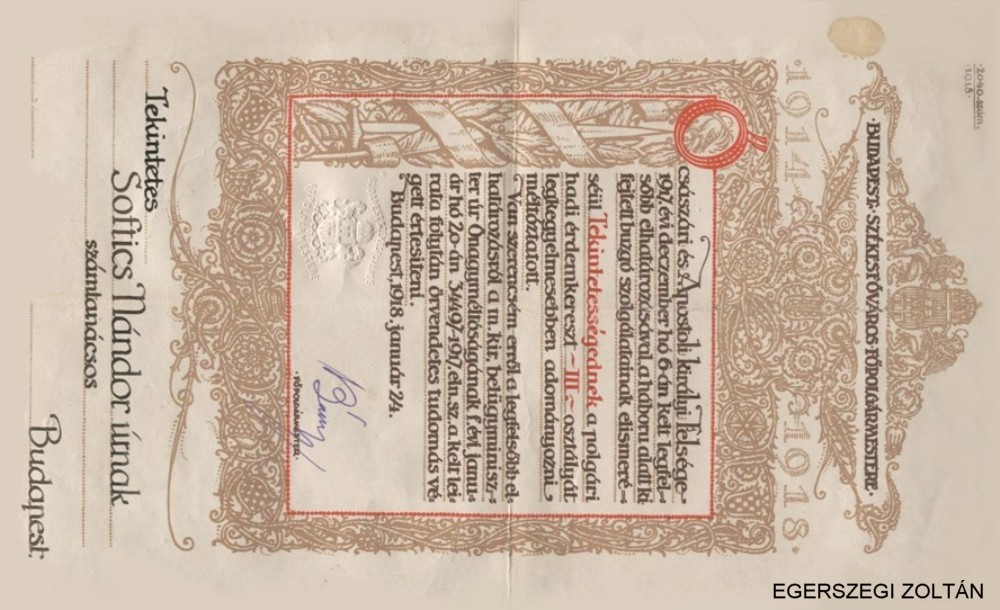 2040. szám.
1918.
BUDAPEST · SZÉKESFŐVÁROS FŐPOLGÁRMESTERE.
1914 1918.
Ő
császári és Apostoli királyi Felsége
1917. évi deczember hó 6-án kelt legfel-
sőbb elhatározásával a háboru alatt ki
fejtett buzgó szolgálatainak elismeré-
séül Tekintetességednek a polgári
hadi érdemkereszt -III- osztályát
legkegyelmesebben adományozni
méltóztatott.
Van szerencsém erről a legfelsőbb el
határozásról a m. kir. belügyminisz-
ter úr Őnagyméltóságának f. évi janu-
ár hó 20-án 34497-1917. eln. sz. a. kelt lei
rata folytán örvendetes tudomás vé
gett értesiteni.
Budapest, 1918. január 24.
FŐPOLGÁRMESTER.
Tekintetes
Softics Nándor úrnak
számtanácsos
Budapest.
EGERSZEGI ZOLTÁN